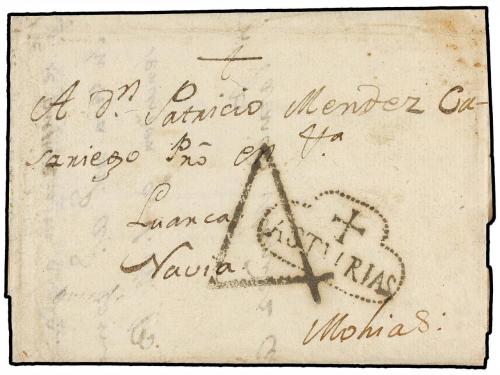 A dⁿ. Patricio Mendez Ca-
sariego Pñō en Vᵃ
Luanca
Navia
4
ASTURIAS
Mohias: